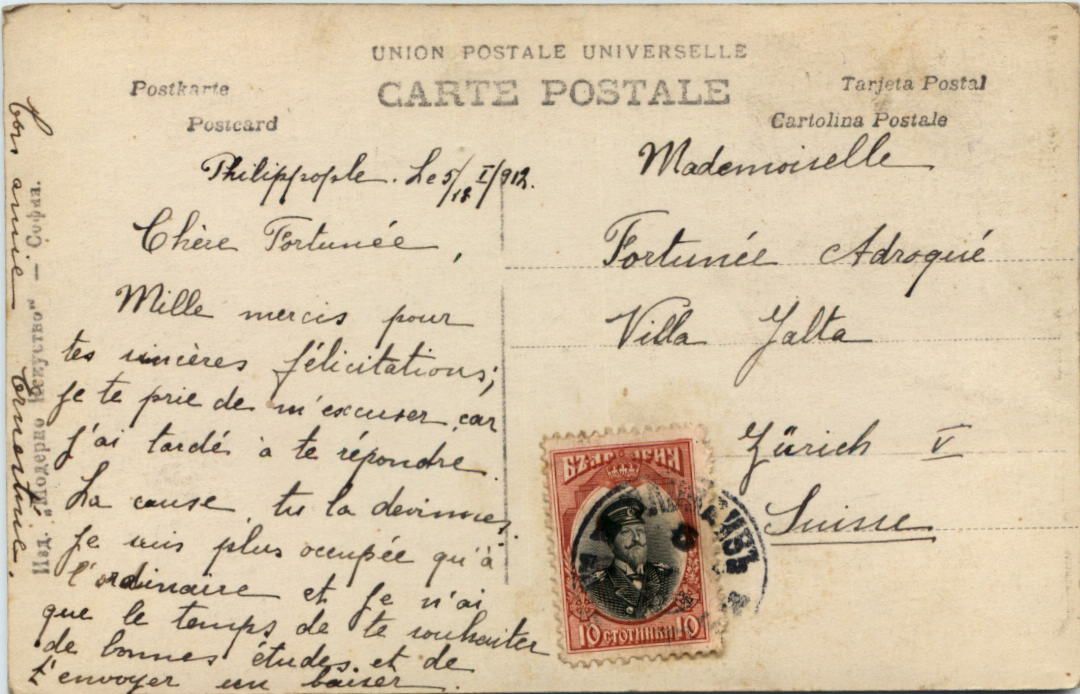 UNION POSTALE UNIVERSELLE
CARTE POSTALE
Postkarte
Postcard
Tarjeta Postal
Cartolina Postale
Philippople. Le 5/18 I/912.
Chère Fortunée,
Mille mercis pour
tes sincères félicitations;
je te prie de m'excuser, car
j'ai tardé à te répondre
La cause, tu la devinnes,
je suis plus occupée qu'à
l'ordinaire et je n'ai
que le temps de te souhaiter
de bonnes études et de
t'envoyer un baiser.
Ton amie Ernestine.
Изд. "Модерно Искуство" — София.
Mademoiselle
Fortunée Adroqué
Villa Jalta
Zürich V
Suisse
БЪЛГАРИЯ
10 СТОТИНКИ 10